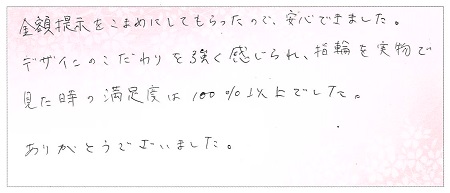 金額提示をこまめにしてもらったので、安心できました。
デザインのこだわりを強く感じられ、指輪を実物で
見た時の満足度は100%以上でした。
ありがとうございました。